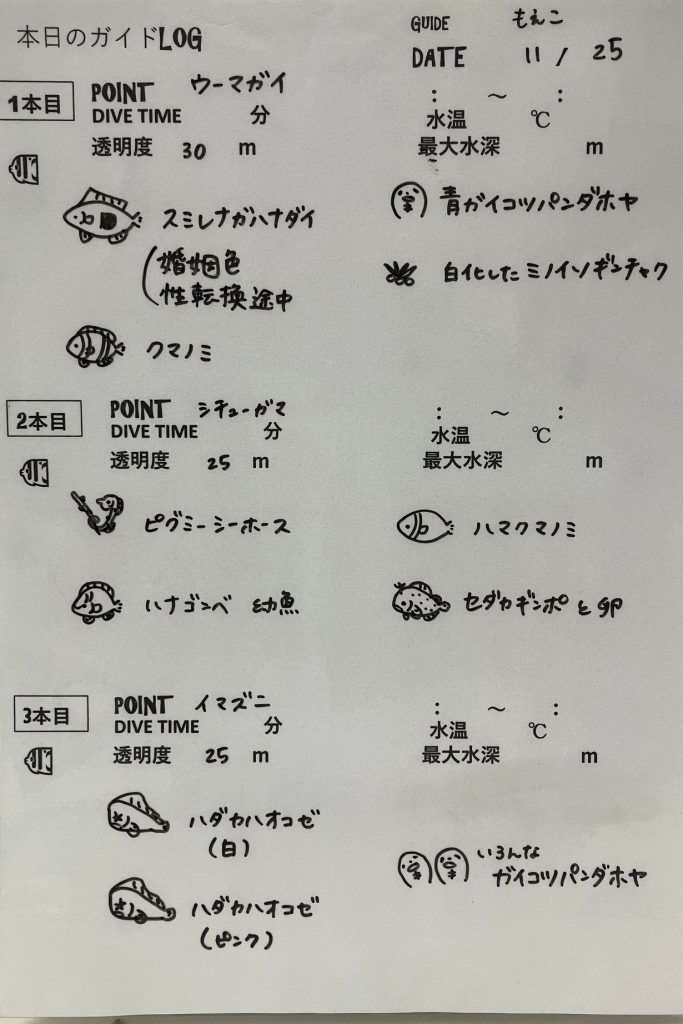 本日のガイドLOG
GUIDE もえこ
DATE 11 / 25
1本目
POINT ウーマガイ
: ～ :
DIVE TIME 分
水温 ℃
透明度 30 m
最大水深 m
スミレナガハナダイ
(婚姻色
性転換途中
クマノミ
青ガイコツパンダホヤ
白化したミノイソギンチャク
2本目
POINT シチューガマ
: ～ :
DIVE TIME 分
水温 ℃
透明度 25 m
最大水深 m
ピグミーシーホース
ハマクマノミ
ハナゴンベ 幼魚
セダカギンポと卵
3本目
POINT イマズニ
: ～ :
DIVE TIME 分
水温 ℃
透明度 25 m
最大水深 m
ハダカハオコゼ
(白)
ハダカハオコゼ
(ピンク)
いろんな
ガイコツパンダホヤ